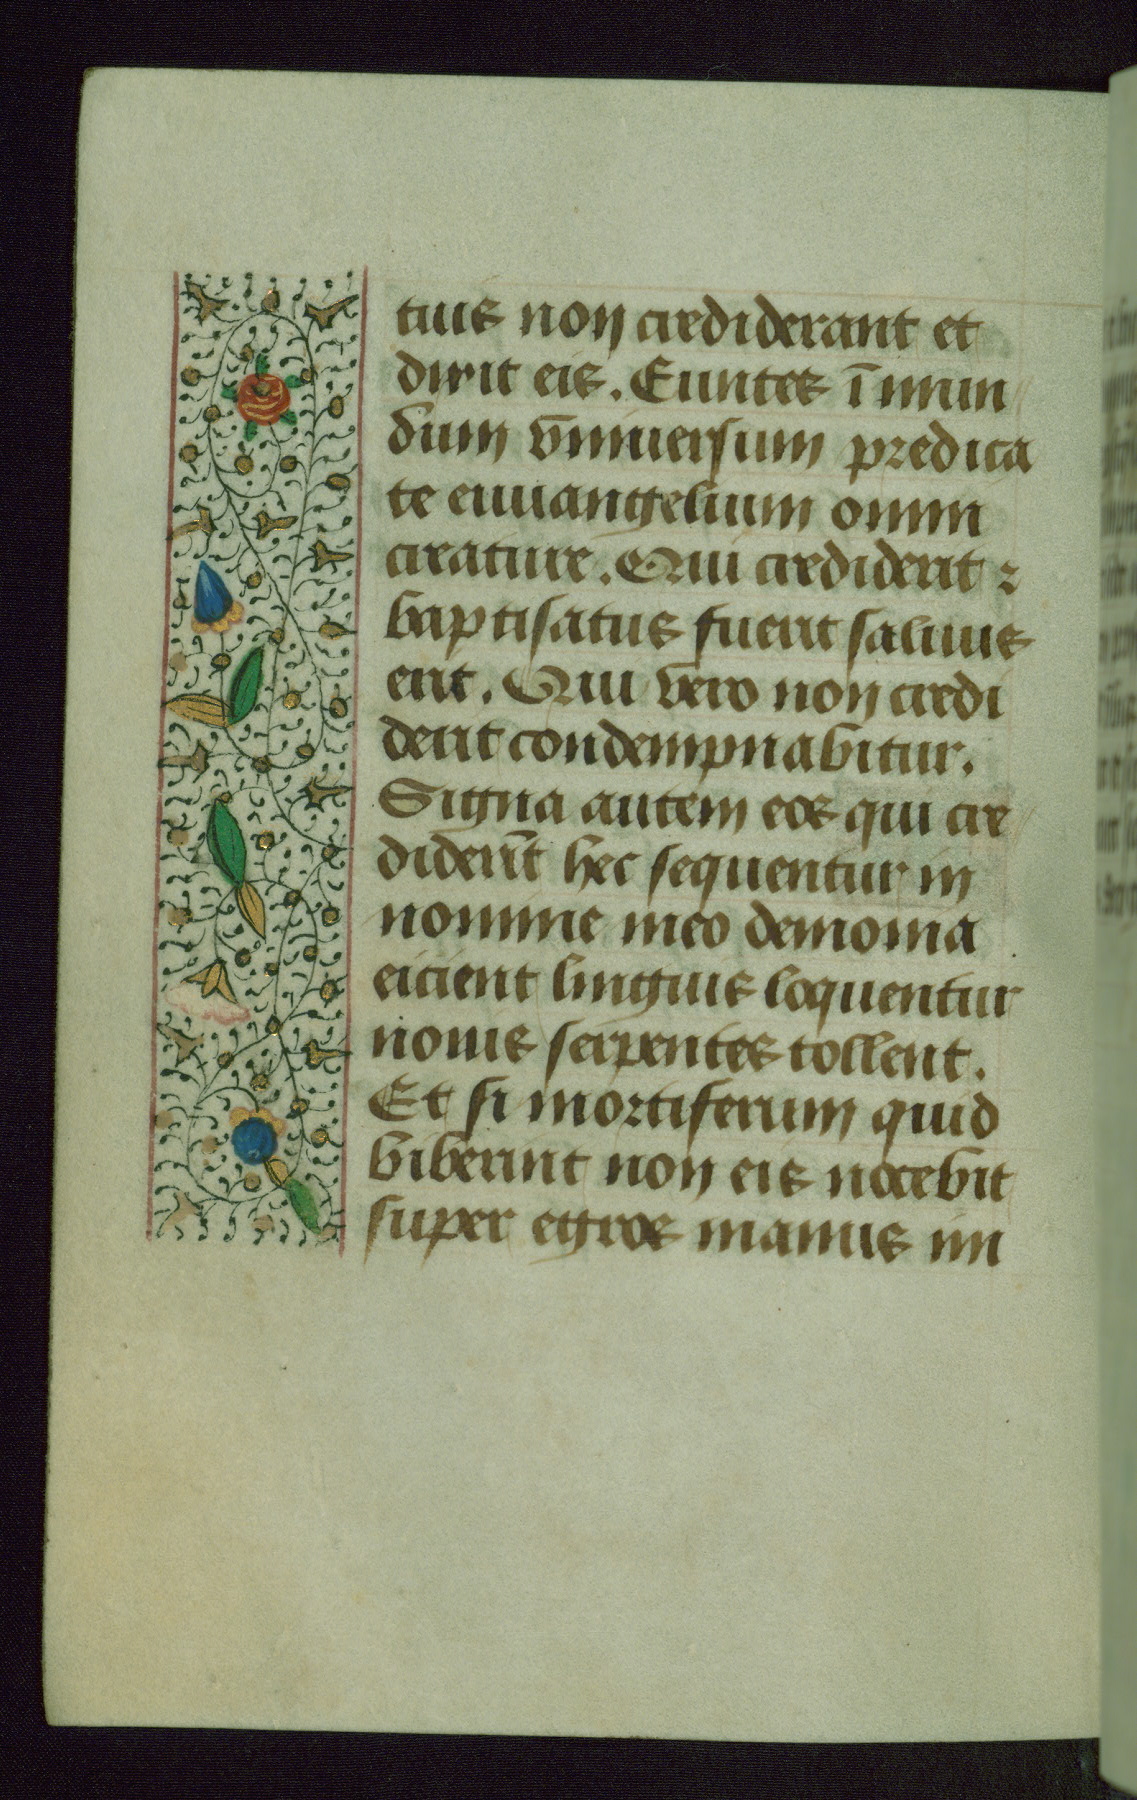 tuis non crediderant et
dixit eis. Euntes ī mun
dum v̄niuersum predica
te euuangelium omni
creature. Qui crediderit ⁊
baptisatus fuerit saluus
erit. Qui vero non credi
derit condempnabitur.
Signa autem eos qui cre
diderīt hec sequentur in
nomine meo demonia
eicient linguis loquentur
nouis serpentes tollent.
Et si mortiferum quid
biberint non eis nocebit
super egros manus im